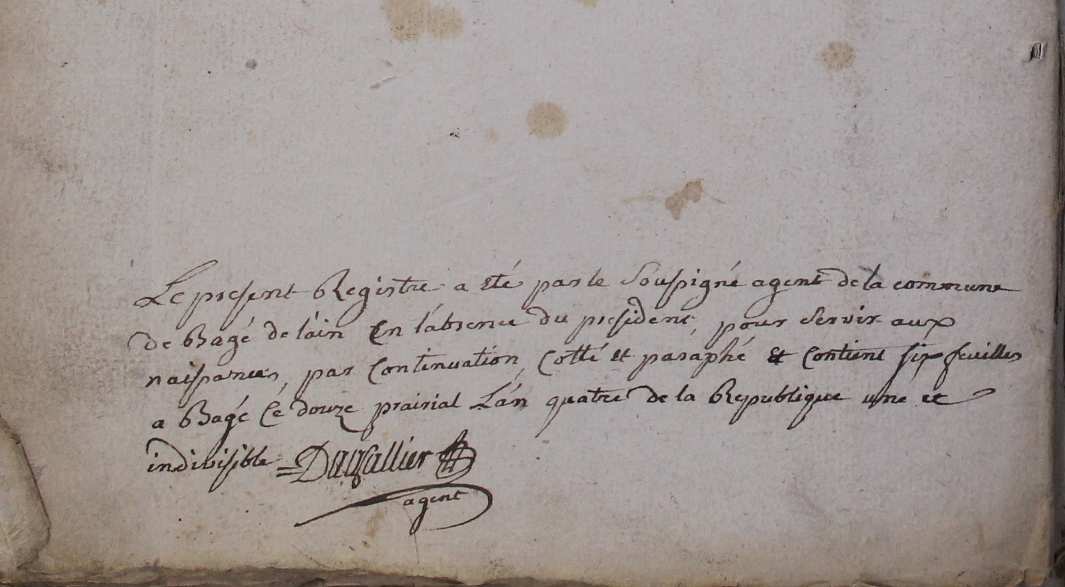 Le present Registre a été par le soussigné agent de la commune
de Bagé de lain En l'absence du president, pour servir aux
naissances, par Continuation, Cotté et paraphé et Contient six feuilles
a Bagé Ce douze prairial L'an quatre de la Republique une et
indivisible =
agent